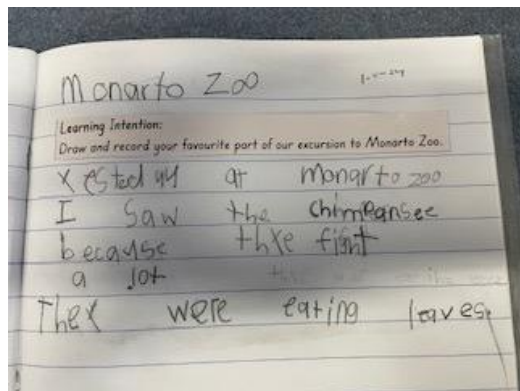 Monarto Zoo
Learning Intention:
Draw and record your favourite part of our excursion to Monarto Zoo.
Xesteday at monarto zoo
I saw the chimpansee
because thxe fight
a lot
Thex were eating leaves,